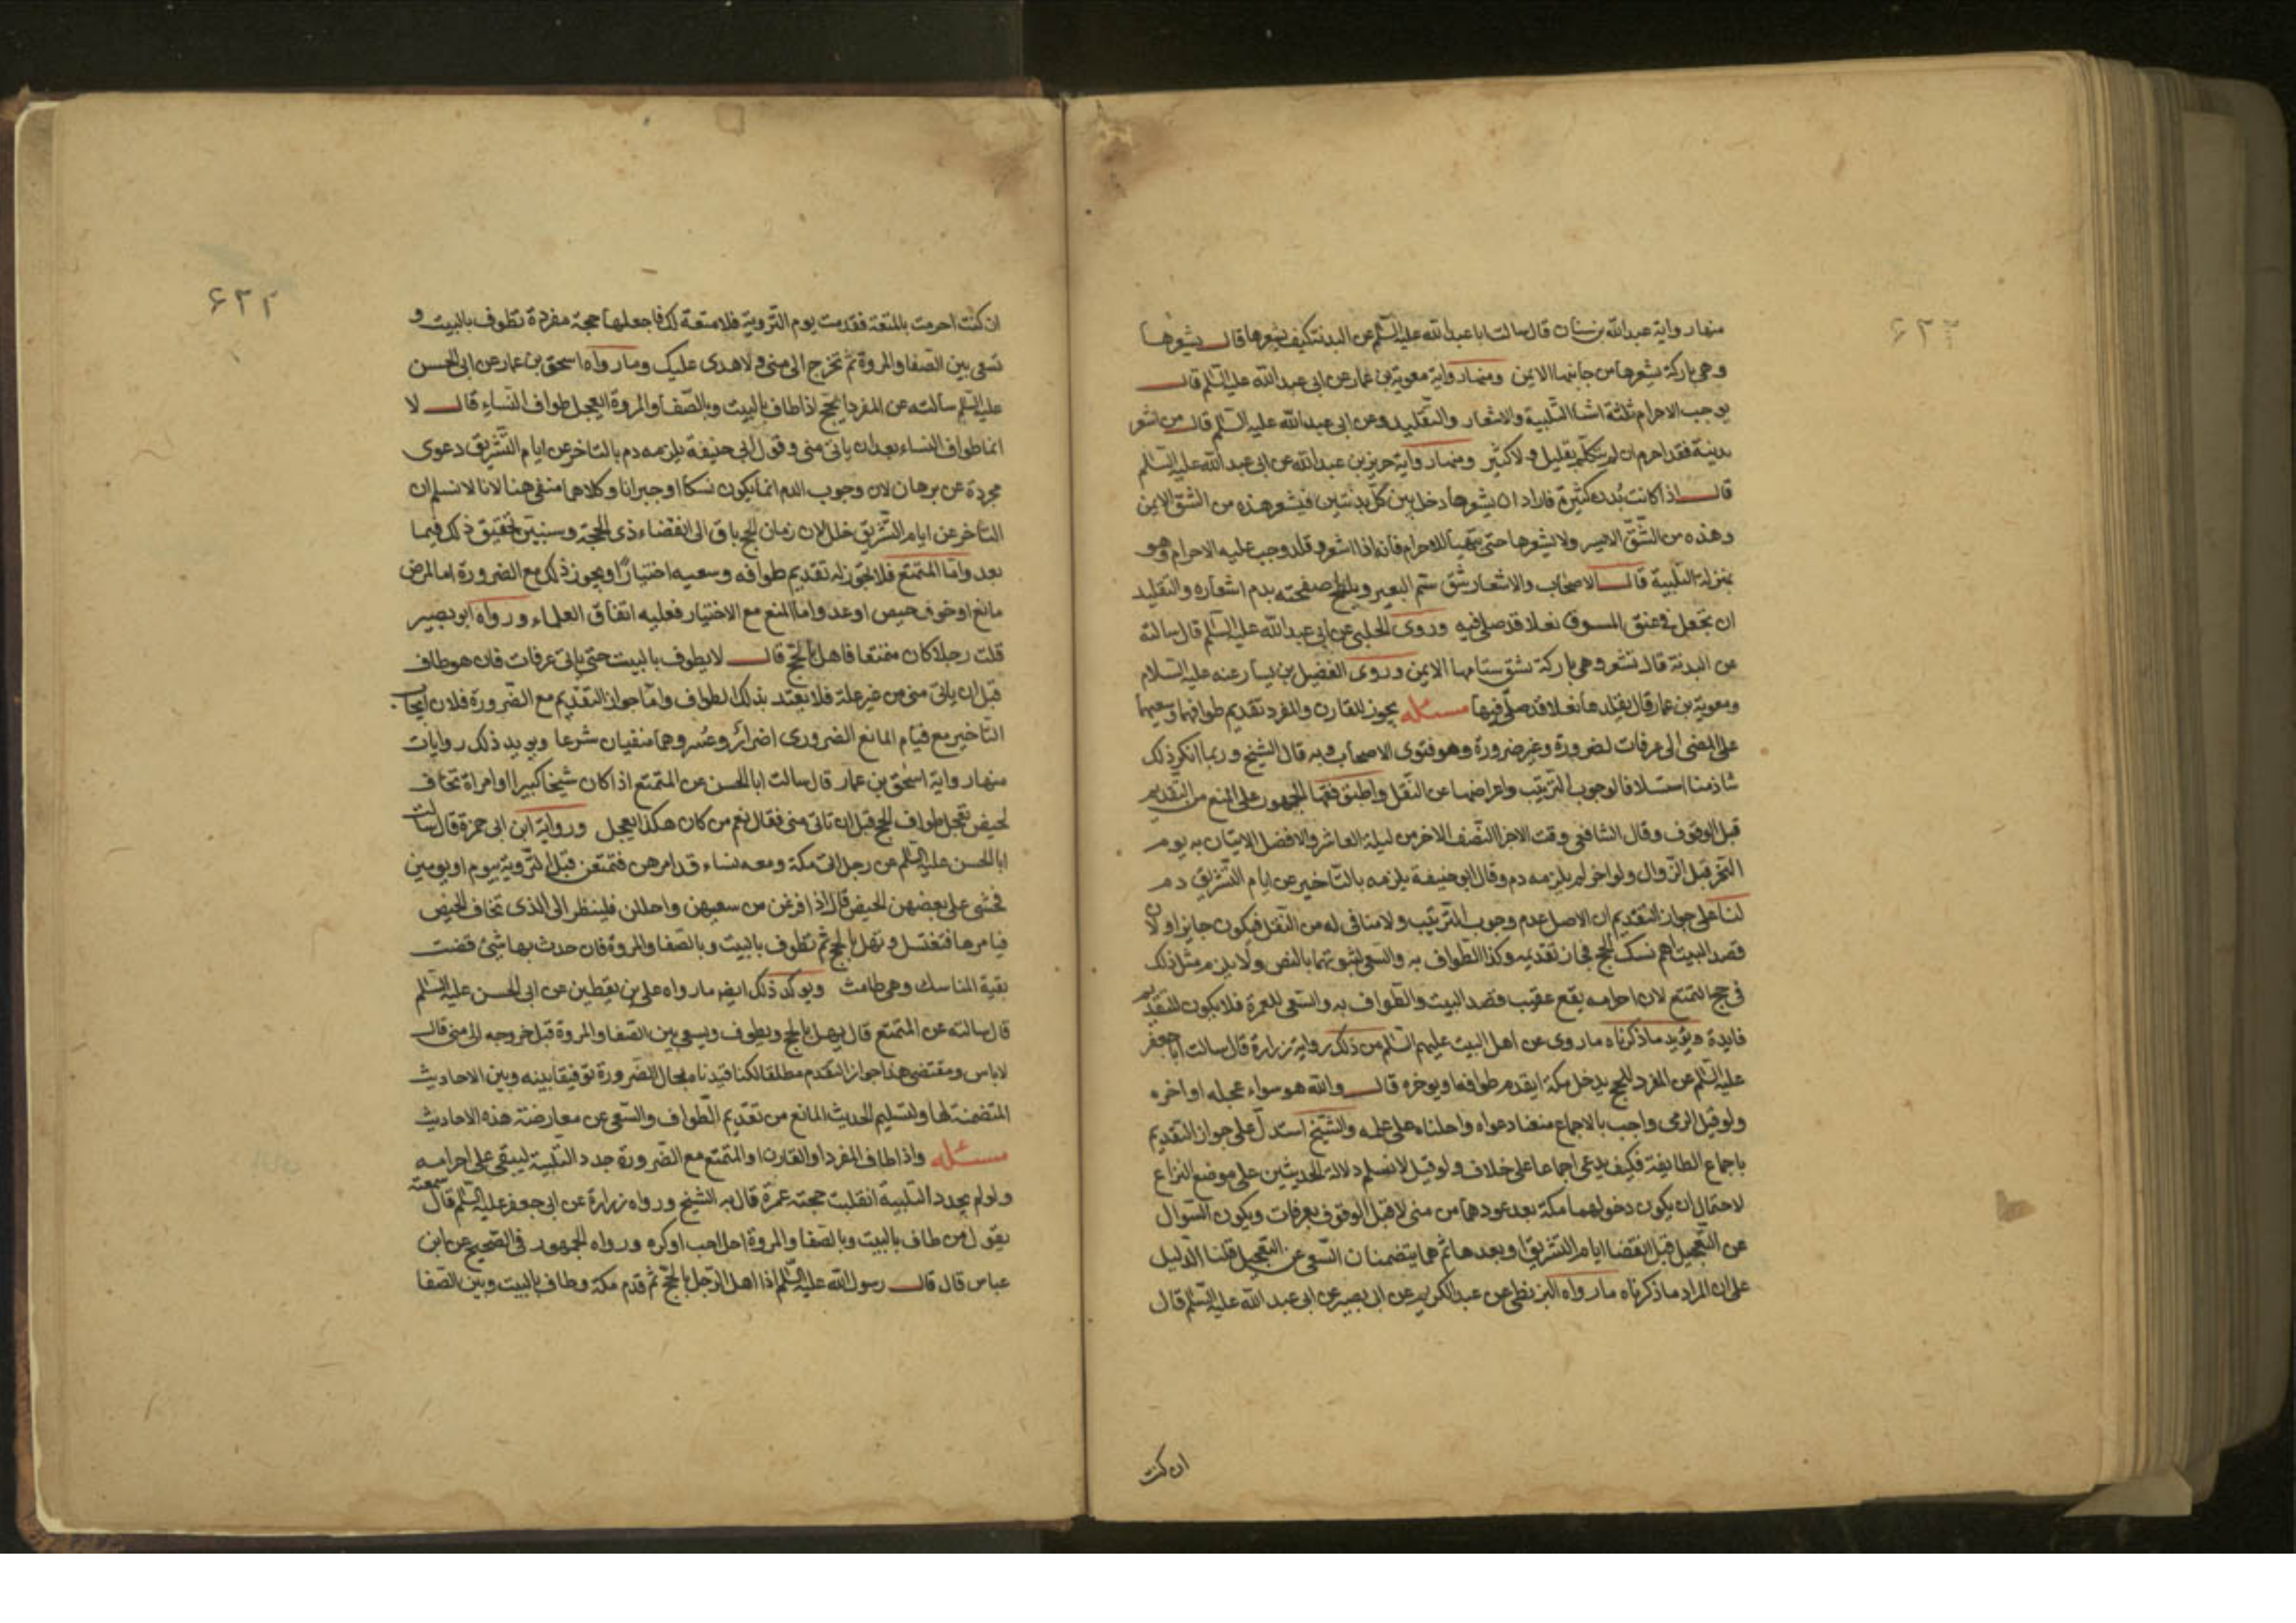 ۶۲۲
منها رواية عبدالله بن سنان قال سالت ابا عبدالله عليه السّلم عن البدنة كيف يشعرها قال يشعرها
وهي باركة يشعرها من جانبها الايمن ومنها رواية معوية بن عمار عن ابي عبدالله عليه السّلم قال
يوجب الاحرام ثلثة اشيا التلبية والاشعار والتقليد وعن ابي عبدالله عليه السّلم قال من اشعر
بدنته فقد احرم ان لم يتكلم بقليل ولا كثير ومنها رواية حريز بن عبدالله عن ابي عبدالله عليه السّلم
قال اذا كانت بُدن كثيرة فاراد ان يشعرها دخل بين كلّ بدنتين فيشعر هذه من الشقّ الايمن
وهذه من الشّقّ الايسر ولا يشعرها حتى يتهيّأ للاحرام فانه اذا اشعر وقلد وجب عليه الاحرام وهو
بمنزلة التّلبية قال الاصحاب والاشعار شقّ سنم البعير ويلطخ صفحته بدم اشعاره والتقليد
ان يجعل في عنق المسوق نعلا قد صلى فيه وروى الحلبي عن ابي عبدالله عليه السّلم قال سالته
عن البدنة قال تشعر وهي باركة يشق سنامها الايمن وروى الفضيل بن يسار عنه عليه السّلام
ومعوية بن عمار قال يقلدها نعلا قد صلّى فيها مسئله يجوز للقارن والمفرد تقديم طوافهما وسعيهما
على المضى الى عرفات لضرورة وغير ضرورة وهو فتوى الاصحاب وبه قال الشيخ وربما انكر ذلك
شاذ منا استسلافا لوجوب التّرتيب واعراضها عن النّقل واطبق فقها الجمهور على المنع من التقديم
قبل الوقوف وقال الشافعي وقت الاجزا النّصف الاخر من ليلة العاشر والافضل الاتيان به يوم
النّحر قبل الزّوال ولو اخر لم يلزمه دم وقال ابو حنيفة يلزمه بالتّاخير عن ايام التّشريق دم
لنا على جواز التقديم ان الاصل عدم وجوب التّرتيب ولا منافى له من النّقل فيكون جايزا ولان
قصد البيت اهم نسك الحج فجاز تقديمه وكذا الطّواف به والسّعي لثبوتهما بالنص ولا يلزم مثل ذلك
في حج التمتع لان احرامه يقع عقيب قصد البيت والطّواف به والسّعي للعمرة فلا يكون للتقديم
فايدة ويؤيد ما ذكرناه ما روى عن اهل البيت عليهم السّلم من ذلك رواية زرارة قال سالت ابا جعفر
عليه السّلم عن المفرد للحج يدخل مكة ايقدم طوافه او يوخره قال والله هو سواء عجله او اخره
ولو قيل الرمى واجب بالاجماع منعنا دعواه واحلناه على علمه والشّيخ استدلّ على جواز التقديم
باجماع الطايفة فكيف يدعى اجماعا على خلافه ولو قيل لا نسلم دلالة الحديثين على موضع النزاع
لاحتمال ان يكون دخولهما مكة بعد عودهما من منى لا قبل الوقوف بعرفات ويكون السّوال
عن التعجيل قبل انقضا ايام التشريق او بعدها ثم هما يتضمنان السّعي عن التعجيل قلنا الدّليل
على ان المراد ما ذكرناه ما رواه البزنطي عن عبد الكريم عن ابي بصير عن ابي عبدالله عليه السّلم قال
ان كنت
۶۲۳
ان كنت احرمت بالمتعة فقدمت يوم التّروية فلا متعة لك فاجعلها حجة مفردة تطوف بالبيت و
تسعى بين الصّفا والمروة ثمّ تخرج الى منى ولا هدى عليك وما رواه اسحق بن عمار عن ابي الحسن
عليه السّلم سالته عن المفرد بالحج اذا طاف بالبيت وبالصّفا والمروة ايعجل طواف النّساء قال لا
انما طواف النساء بعد ان ياتى منى وقول ابي حنيفة يلزمه دم بالتاخر عن ايام التّشريق دعوى
مجردة عن برهان لان وجوب الدم انما يكون نسكا او جبرانا وكلاهما منفى هنا لانا لا نسلم ان
التاخر عن ايام التّشريق خلل لان زمان الحج باق الى انقضاء ذى الحجّة وسنبيّن تحقيق ذلك فيما
بعد وامّا المتمتع فلا يجوز له تقديم طوافه وسعيه اختيارًا ويجوز ذلك مع الضرورة اما لمرض
مانع او خوف حيض او عدو اما المنع مع الاختيار فعليه اتفاق العلماء ورواه ابو بصير
قلت رجلا كان متمتعا فاهل بالحّج قال لا يطوف بالبيت حتى ياتى عرفات فان هو طاف
قبل ان ياتى منى من غير علة فلا يعتد بذلك الطواف وامّا جواز التقديم مع الضرورة فلان ايجاب
التّاخير مع قيام المانع الضرورى اضرارٌ وعُسر وهما منفيان شرعا ويويد ذلك روايات
منها رواية اسحٰق بن عمار قال سالت ابا الحسن عن المتمتع اذا كان شيخا كبيرا او امراة تخاف
الحيض تعجل طواف الحج قبل ان تاتى منى فقال نعم من كان هكذا يعجل ورواية ابن ابي حمزة قال سالت
ابا الحسن عليه السّلم عن رجل اتى مكة ومعه نساء قد امرهن فتمتعن قبل التّروية بيوم او يومين
فخشى على بعضهن الحيض قال اذا فرغن من سعيهن واحللن فلينظر الى الذى تخاف الحيض
فيامرها فتغتسل وتهل بالحج ثم تطوف بالبيت وبالصّفا والمروة فان حدث بها شئ قضت
بقية المناسك وهي طامث ويوكد ذلك ايضا ما رواه على بن يقطين عن ابي الحسن عليه السّلم
قال سالته عن المتمتع قال يهل بالحج ويطوف ويسعى بين الصّفا والمروة قبل خروجه الى منى قال
لا باس ومقتضى هذا جواز التقدم مطلقا لكنا قيدناه بحال الضّرورة توفيقا بينه وبين الاحاديث
المتضمنة لها ولتسليم الحديث المانع من تقديم الطّواف والسّعي عن معارضة هذه الاحاديث
مسئله واذا طاف المفرد او القارن او المتمتع مع الضّرورة جدد التلبية ليبقى على احرامه
ولو لم يجدد التّلبية انقلبت حجته عمرة قال به الشّيخ ورواه زرارة عن ابي جعفر عليه السّلم قال سمعته
يقول من طاف بالبيت وبالصّفا والمروة احل احب او كره ورواه الجمهور في الصّحيح عن ابن
عباس قال قال رسول الله عليه السّلم اذا اهل الرّجل بالحجّ ثم قدم مكة وطاف بالبيت وبين الصّفا